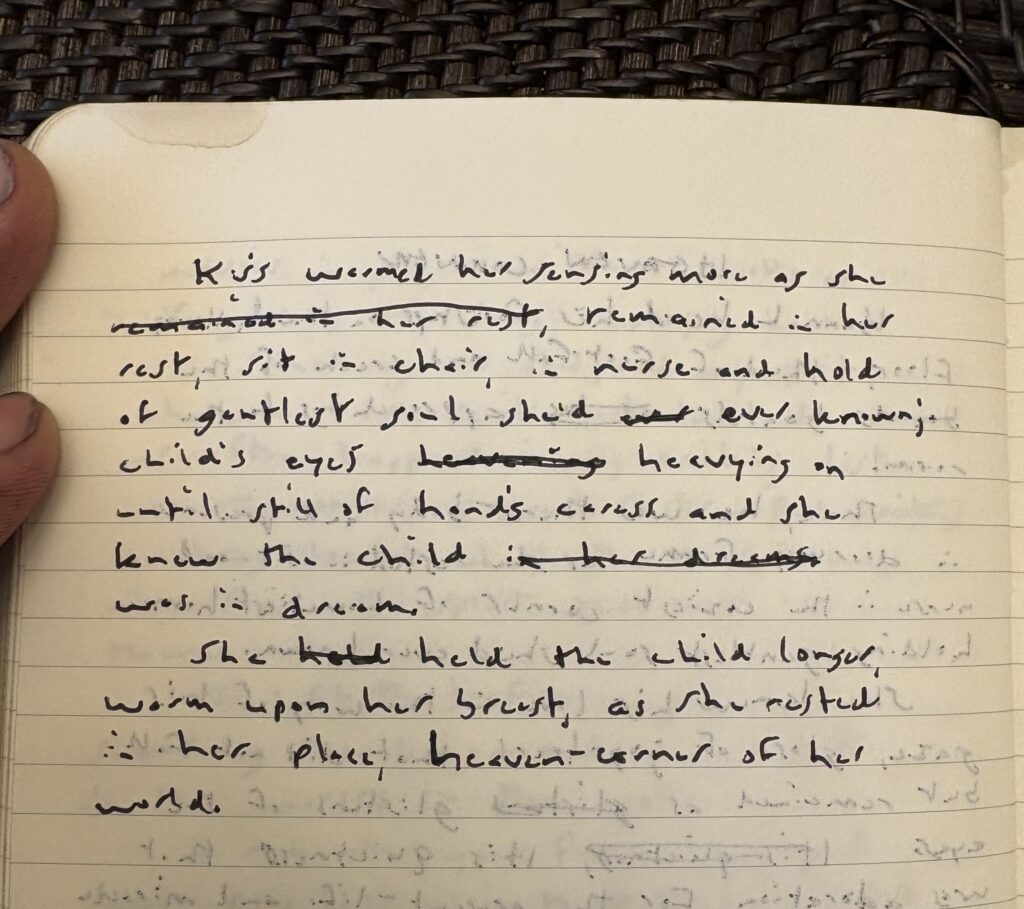 Kiss warmed her sensing more as she
remained in her rest, remained in her
rest, sit in chair, in nurse and hold
of gentlest soul she'd ever known;
child's eyes heavying on
until still of hand's caress and she
knew the child in her dreams
was in dream.
She held held the child longer,
warm upon her breast, as she rested
in her place, heaven-corner of her
world.